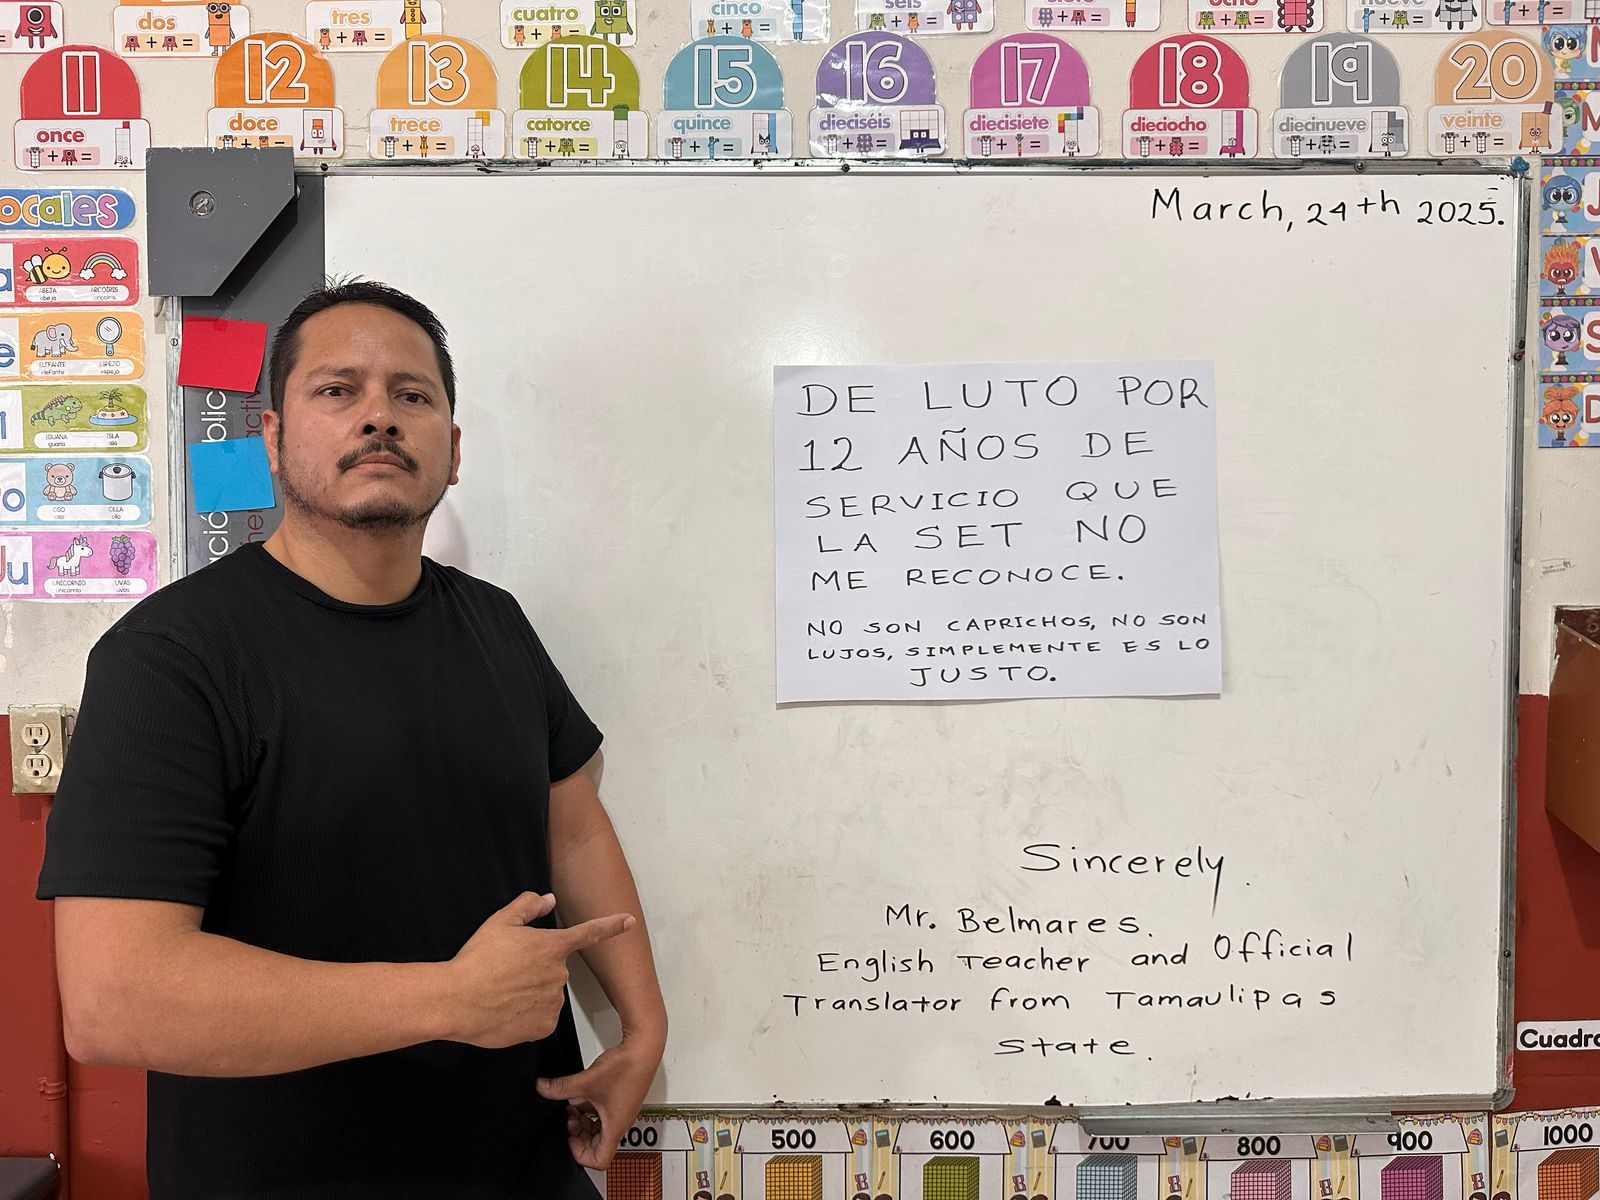 dos
tres
cuatro
cinco
seis
11
12
13
14
15
16
17
18
19
20
once
doce
trece
catorce
quince
dieciséis
diecisiete
dieciocho
diecinueve
veinte
+ =
March, 24th 2025.
ocales
a
ABEJA
abeja
ARCOÍRIS
arcoíris
e
ELEFANTE
elefante
ESPEJO
espejo
i
IGUANA
iguana
ISLA
isla
o
OSO
oso
OLLA
olla
u
UNICORNIO
unicornio
UVAS
uvas
DE LUTO POR
12 AÑOS DE
SERVICIO QUE
LA SET NO
ME RECONOCE.
NO SON CAPRICHOS, NO SON
LUJOS, SIMPLEMENTE ES LO
JUSTO.
Sincerely.
Mr. Belmares.
English Teacher and Official
Translator from Tamaulipas
State.
Cuadro
400
500
600
700
800
900
1000